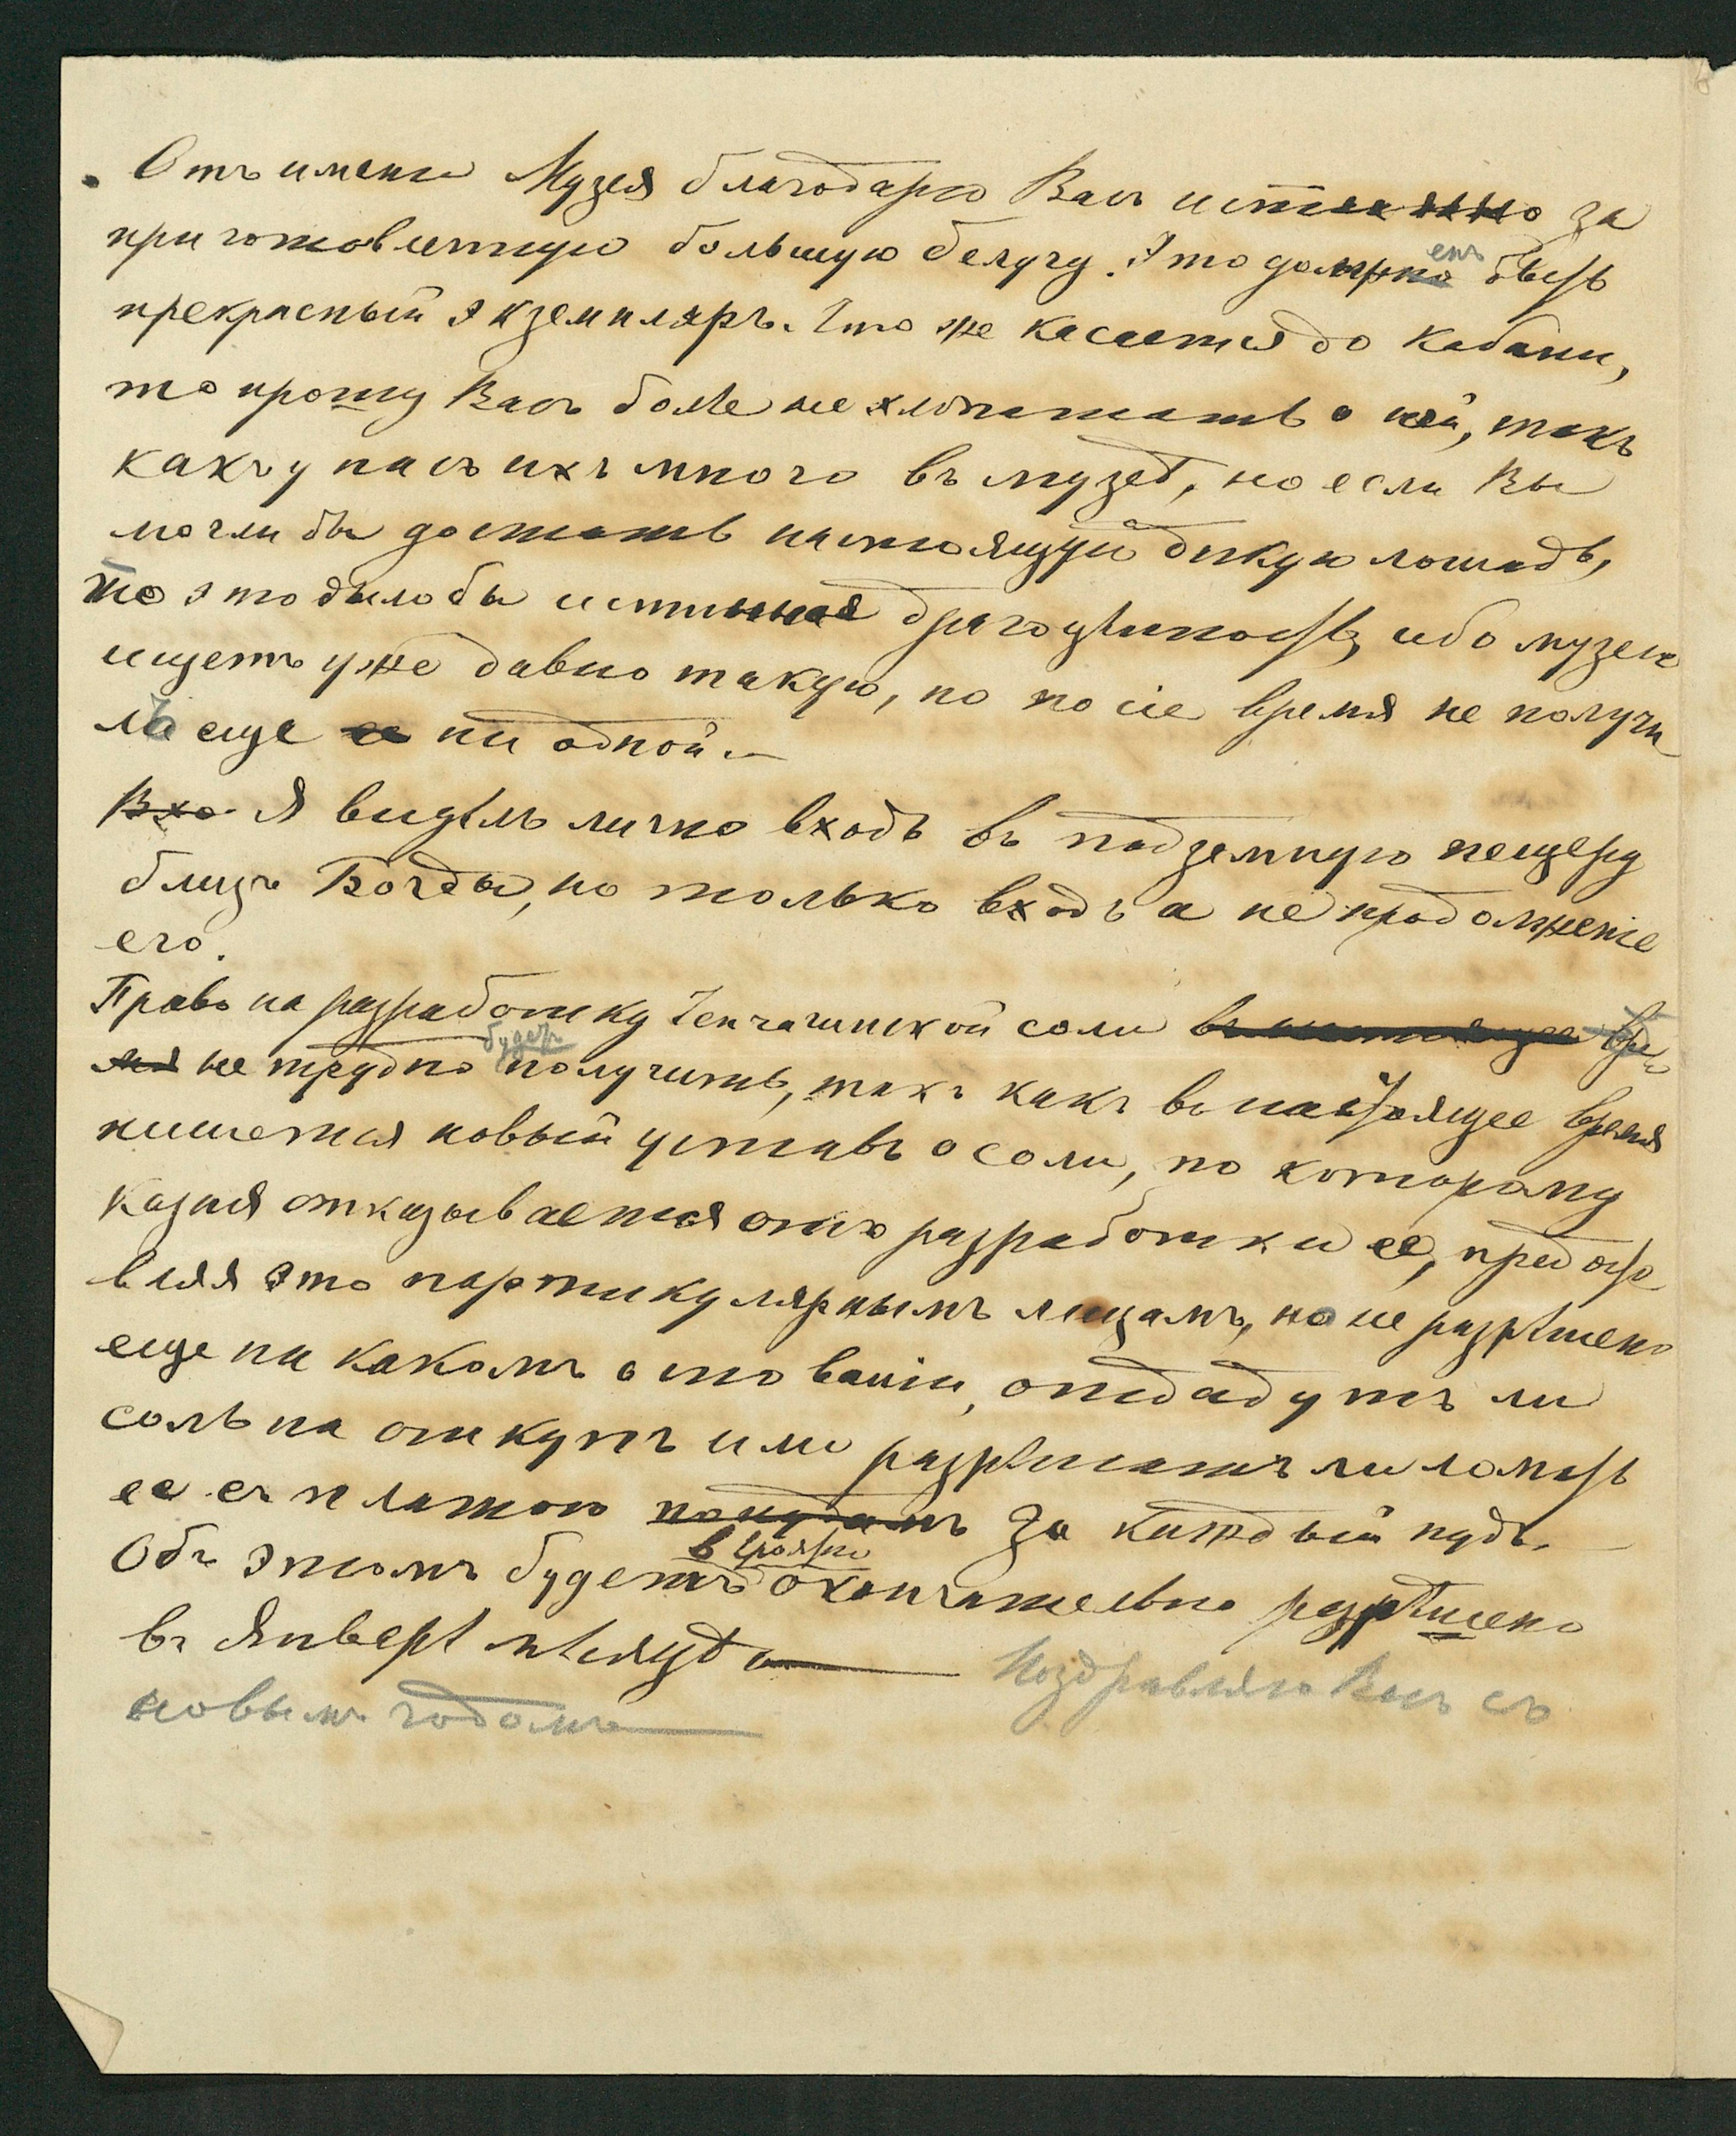 Отъ имени Музея благодарю Васъ истинно за
приготовленную большую белугу. Это долженъ быть
прекрасный экземпляръ. Что же касается до Кабани,
то прошу Васъ более не хлопотать о ней, такъ
какъ у насъ ихъ много въ музеѣ, но если Вы
могли бы достать настоящую дикую лошадь,
то это было бы истинная драгоцѣнность, ибо музей
ищетъ уже давно такую, но по сіе время не получи
лъ еще ни одной.—
Вхо Я видѣлъ лично входъ въ подземную пещеру
близъ Богды, но только входъ а не продолженіе
его.
Право на разработку Чепчачинской соли въ настоящее вре-
мя не трудно будетъ получить, такъ какъ въ настоящее время
пишется новый уставъ о соли, по которому
казна отказывается отъ разработки ее, предоста
вляя это партикулярнымъ лицамъ, но не разрѣшено
еще на какомъ основаніи, отдадутъ ли
соль на откупъ или разрѣшатъ ли ломать
ее съ платою попудамъ За каждый пудъ.
Объ этомъ будетъ вѣроятно окончательно разрѣшено
въ Январѣ мѣсяцѣ — Поздравляю Васъ съ
новымъ годомъ —